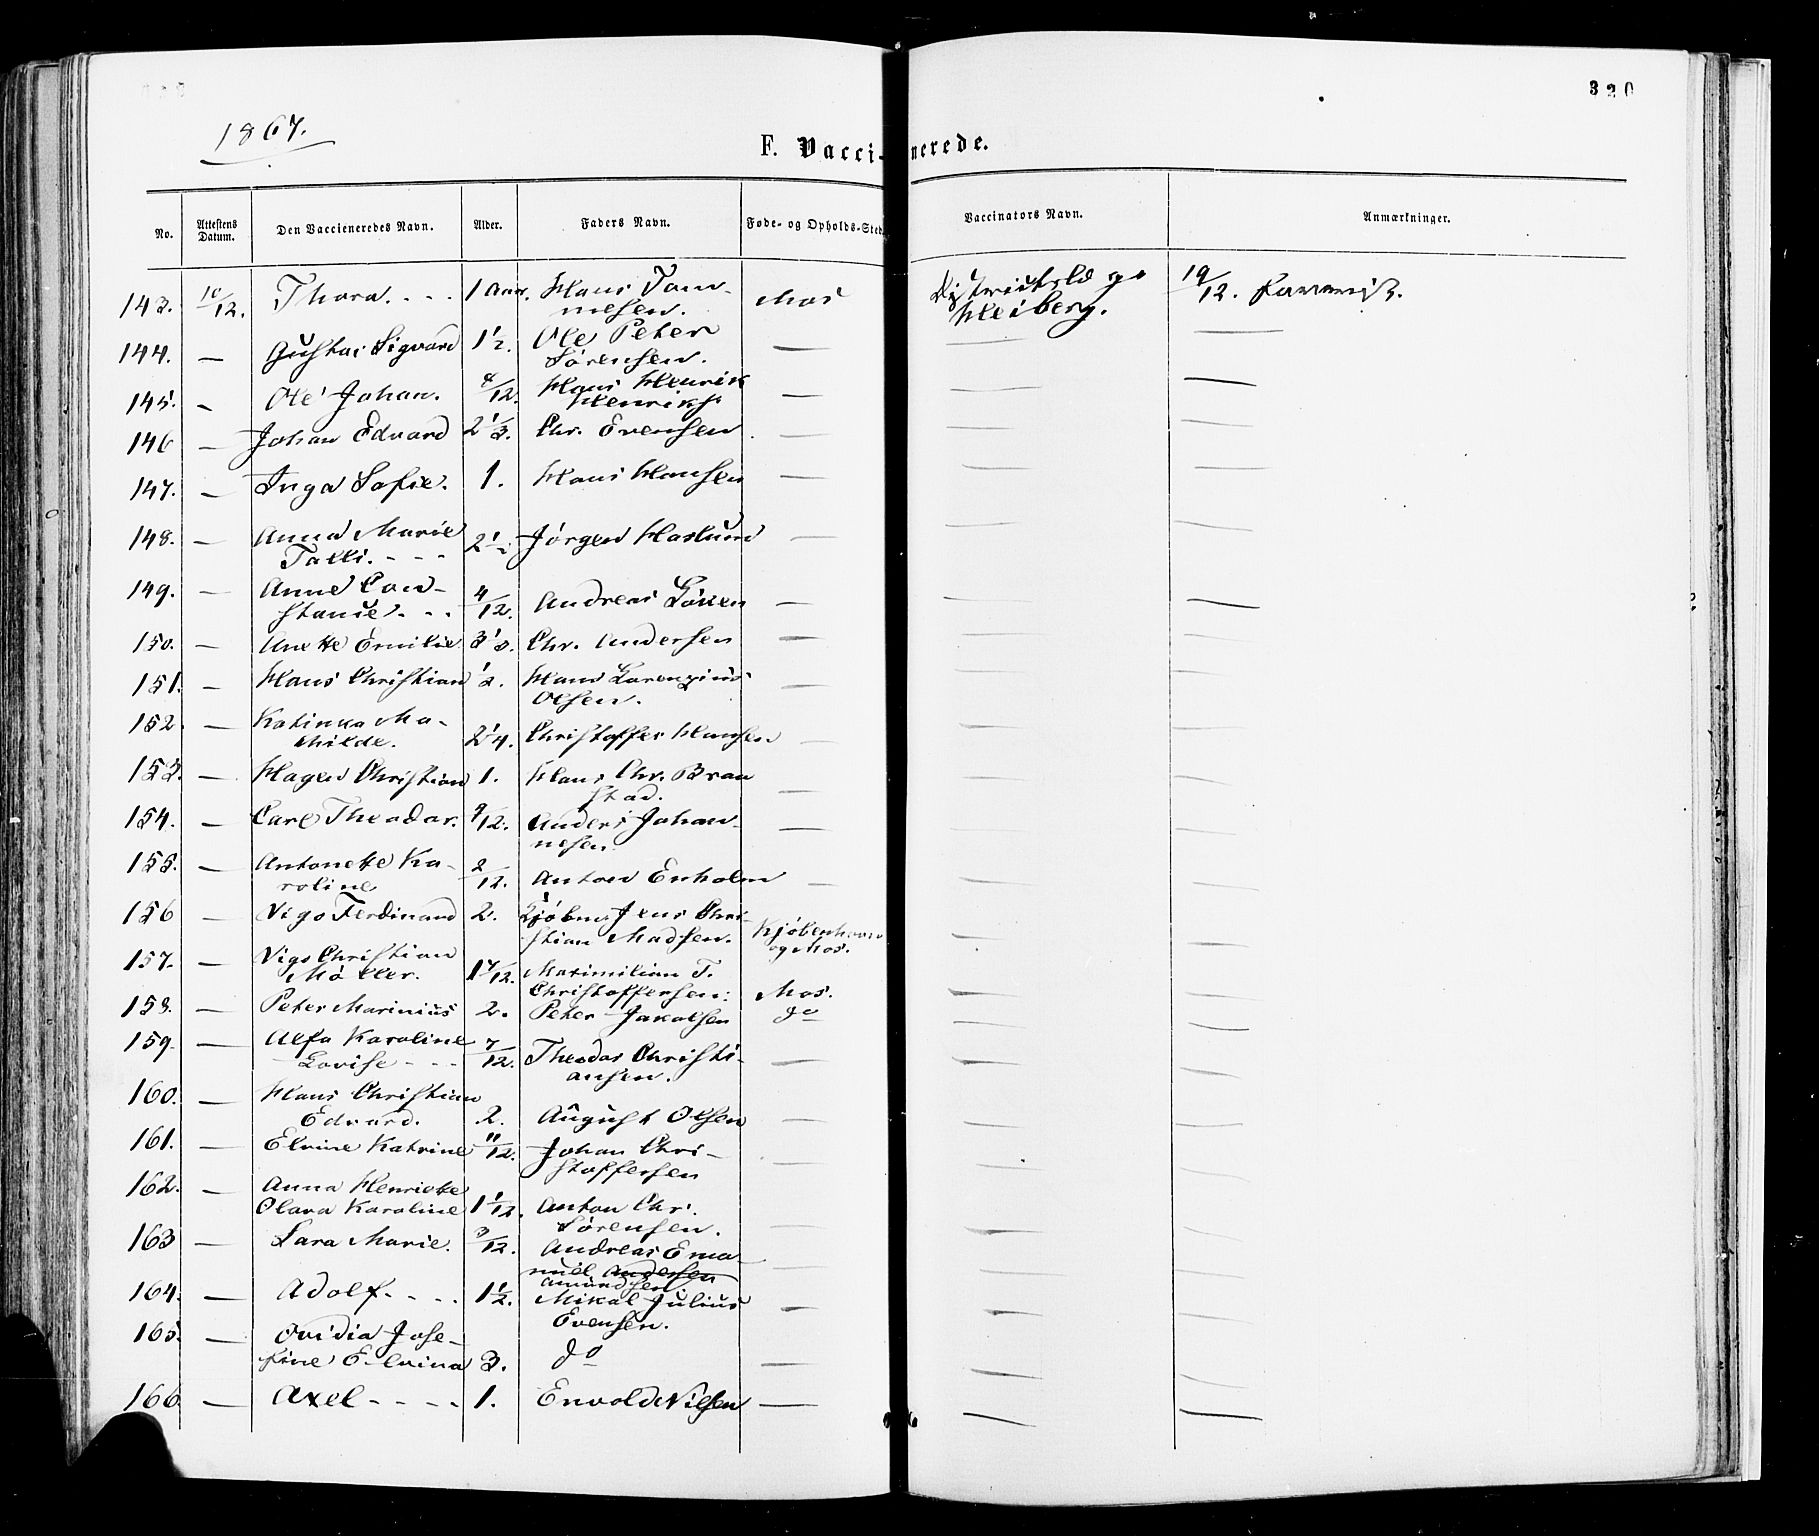 320
1867.
F. Vaccienerede.
No. Attestens Datum. Den Vaccieneredes Navn. Alder. Faders Navn. Føde- og Opholds-Sted Vaccinators Navn. Anmærkninger.
143. 10/12. Thora. - - - 1 Aar. Hans Tom- Mos 19/12.
nesen. Heiberg.
144. — Gustav Sigvard 1 1/2. Ole Peter —
Sørensen.
145. — Ole Johan. 4/12. Hans Henrik —
Henriks.
146 — Johan Edvard 2 1/3. Chr. Evensen —
147. — Inga Sofie. 1. Hans Hansen —
148. — Anna Marie Jørgen Haslund —
- - -
149. — Anne Con- 4/12. Andreas —
stance. - -
150. — Anette Emilie Chr. Andersen —
151. — Hans Christian 1/2. Hans Lorenzius —
Olsen.
152. — Katinka Ma- 2 1/4. Christoffer Hansen —
thilde.
153. — Hagen Christian 1. Hans Chr. Bran —
stad.
154. — Carl Theodor. 9/12. Anders Johan- —
nesen.
155. — Antonette Ka- 2/12. Anton Enholm —
roline
156 — Vigo Ferdinand 2. Jens Chri- Kjøbenhavn
stian Madsen. og Mos.
157. — Vigo Christian 1 7/12. Maximilian T. Mos.
Møller. Christoffersen.
158. — Peter Marinius 2. Peter Jakobsen do
159. — Alfa Karoline 7/12. Theodor Christi- —
Lovise - - - ansen.
160. — Hans Christian
Edvard. 2. August Olsen —
161. — Elvine Katrine 11/12. Johan Chri- —
stoffersen
162. — Anna Henriette
Olava Karoline 1 1/12. Anton Chr. —
Sørensen.
163 — Lara Marie. 3/12. Andreas Ema- —
nuel Andersen
Amundsen
164. — Adolf. - - - - 1 1/2. Mikal Julius —
Evensen.
165. — Ovidia Jose-
fine Elvina 3. do —
166 — Axel - - - - 1. Envold Nilsen —